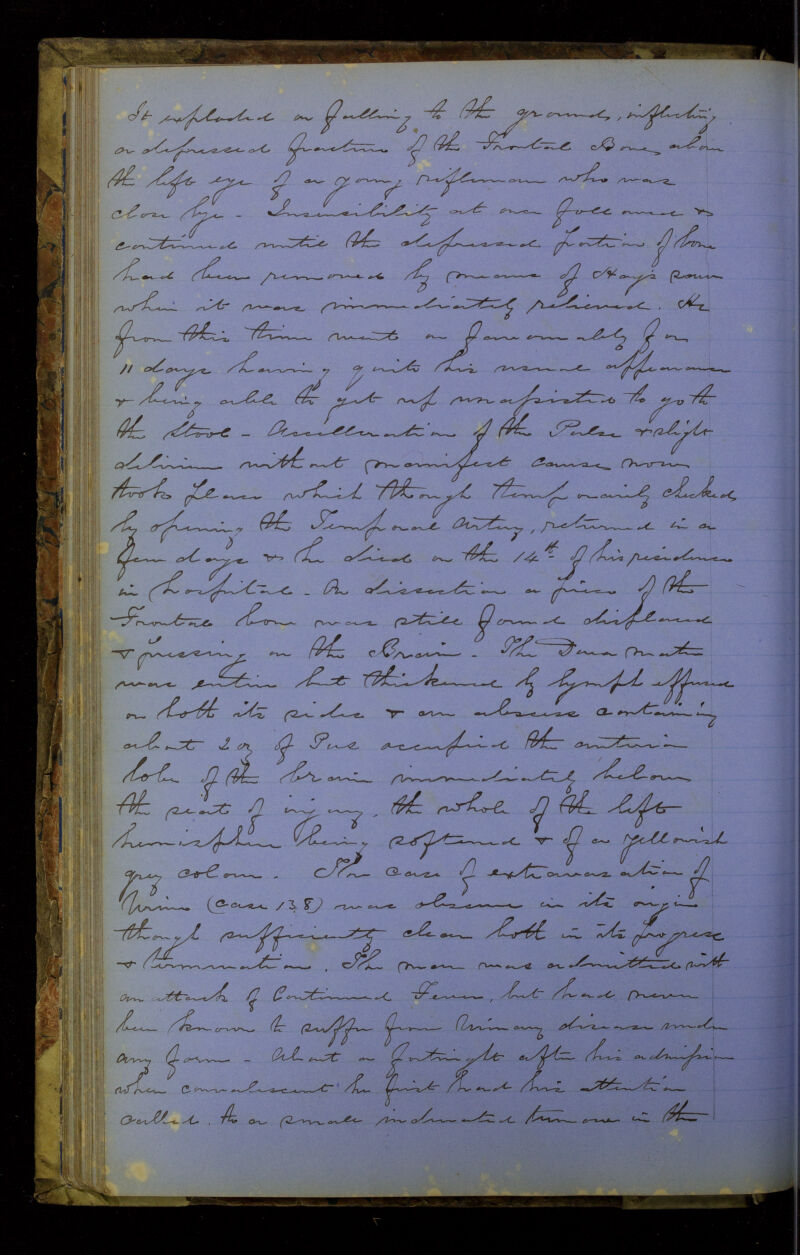 It exploded on falling to the ground, inflicting
a depressed fracture of the Frontal Bone, above
the left eye of a young rifleman who was
close bye - Insensibility at once followed &
continued until the depressed portion of bone
had been removed by means of Hays saw
when it was immediately relieved. He
from this time went on favourably for
11 days having quite his usual appearance
& being able to get up unassisted to go to
the stool - Accelleration of the Pulse & slight
delirium without manifest cause now
took place which though temporarily checked
by opening the Temporal Artery, returned in a
few days & he died on the 14th of his residence
in hospital - On dissection a piece of the
Frontal bone was still found displaced
& pressing on the Brain - The Dura mater
was entire but thickened by lymph effused
on both its sides & an abscess containing
about 2 oz of Pus occupied the anterior
lobe of the brain immediately below
the seat of injury, the whole of the left
hemisphere being softened & of a yellowish
grey colour. The case of extravasation of
Urine (case 138) was obscure in its origin
though sufficiently clear both in its progress
& termination. The man was admitted with
an attack of Continued Fever, but had never
been known to suffer from Urinary disease under
any form - About a fortnight after his admission
when convalescent he first had his attention
called. to a small indurated tumour in the